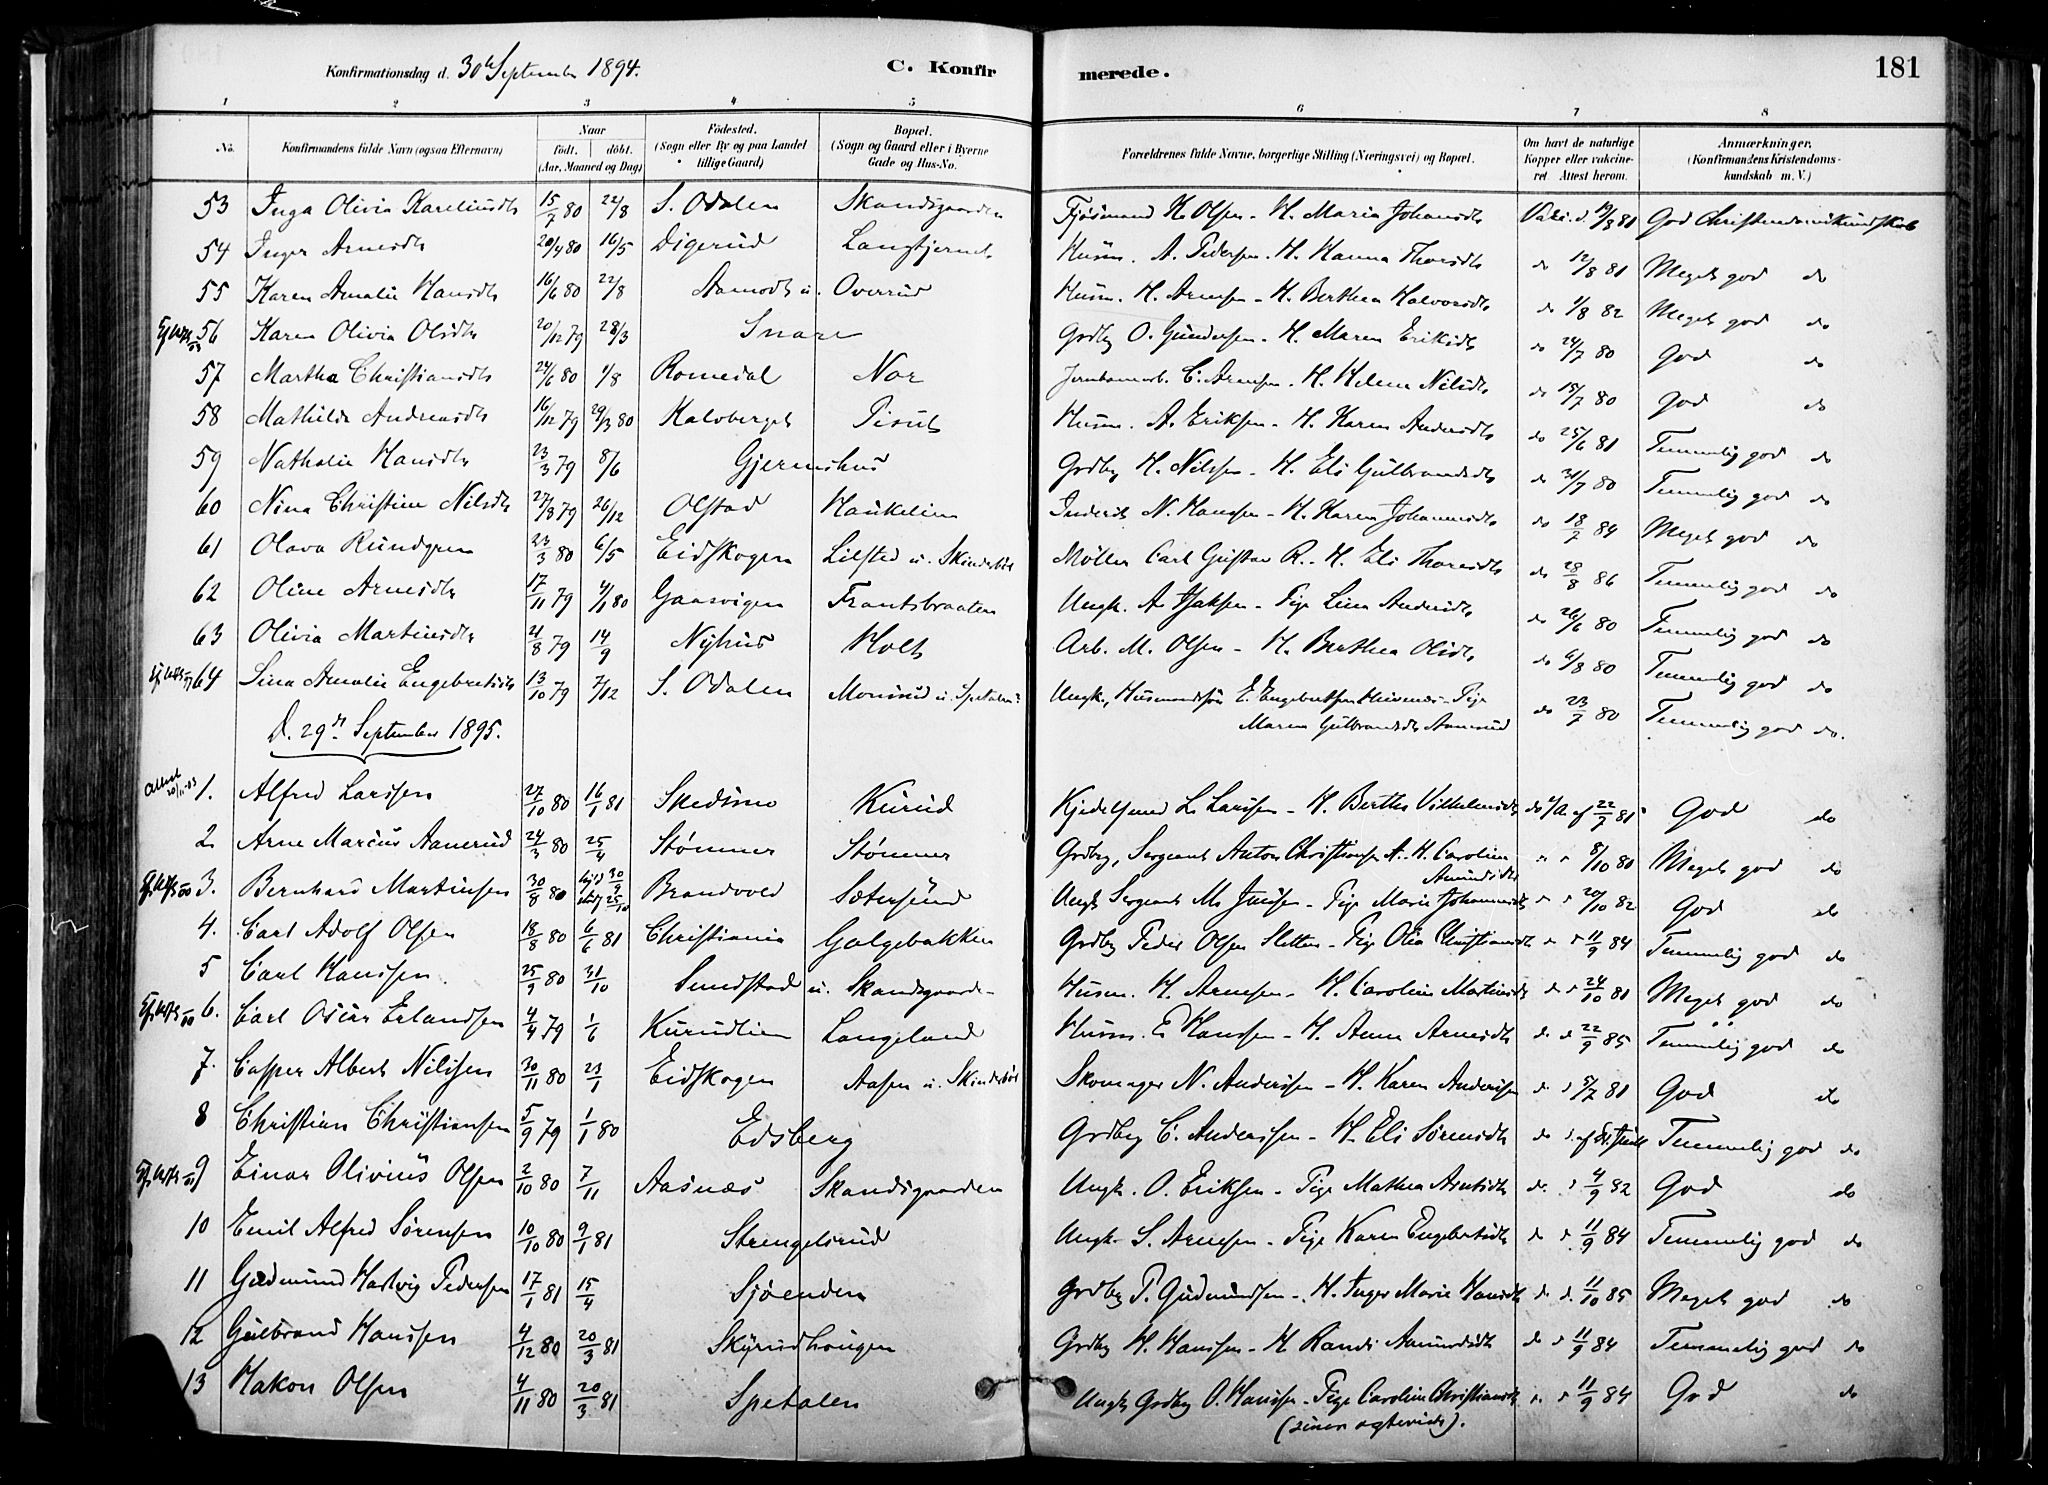 Konfirmationsdag d. 30te September 1894.
C. Konfirmerede.
181
1 2 3 4 5 6 7 8
No. Konfirmandens fulde Navn (ogsaa Efternavn) Naar født. døbt. (Aar, Maaned og Dag) Fødested. (Sogn eller By og paa Landet tillige Gaard) Bopæl. (Sogn og Gaard eller i Byerne Gade og Hus-No. Forældrenes fulde Navne, borgerlige Stilling (Næringsvei) og Bopæl. Om havt de naturlige Kopper eller vakcineret. Attest herom. Anmærkninger. (Konfirmandens Kristendomskundskab m. V.)
53 Inga Olivia Kareliusdtr 15/7 80 22/8 S. Odalen Skandsgaarden Fjøsmand K. Olsen - H. Maria Johansdtr Vakc. d. 19/8 81 God Christendomskundskab
54 Inger Arnesdtr 20/4 80 16/5 Digerud Langtjernet Husm. A. Pedersen - H. Hanna Thorsdtr do 12/8 81 Meget god do
55 Karen Amalie Hansdtr 16/6 80 22/8 Aamodt u. Overud Husm. H. Arnesen - H. Berthea Halvorsdtr do 1/8 82 Meget god do
56 Karen Olivia Olsdtr 20/12 79 28/3 Snare Grdbg O. Gundersen - H. Maren Eriksdtr do 24/7 80 God do
57 Martha Christiansdtr 24/6 80 1/8 Romedal Nor Jernbanearb. C. Arnesen - H. Helene Nilsdtr do 15/7 80 God do
58 Mathilde Andreasdtr 16/12 79 29/3 80 Kalvberget Pisut Husm. A. Eriksen - H. Karen Andersdtr do 25/6 81 Temmelig god do
59 Nathalie Hansdtr 23/3 79 8/6 Gjermshus Grdbg H. Nilssen - H. Eli Gulbrandsdtr do 31/7 80 Temmelig god do
60 Nina Christine Nilsdtr 27/8 79 26/12 Olstad Haukelien Inderst N. Hansen - H. Karen Johannesdtr do 18/7 84 Meget god do
61 Olava Rundgren 23/3 80 6/5 Eidskogen Lilsted u. Skinderbøl Møller Carl Gustav R. - H. Eli Thoresdtr do 28/8 86 Temmelig god do
62 Oline Arnesdtr 17/11 79 4/1 80 Gaasvigen Frantsbraaten Ungk. A. Isaksen - Pige Lina Andersdtr do 26/6 80 Temmelig god do
63 Olivia Martinsdtr 21/8 79 14/9 Nyhus Holt Arb. M. Olsen - H. Berthea Olsdtr do 6/8 80 Temmelig god do
64 Lina Amalie Engebretsdtr 13/10 79 7/12 S. Odalen Monsrud u. Spetalen Ungk., Husmandssøn E. Engebretsen - Pige
Maren Gulbrandsdtr Aamerud do 23/7 80 Temmelig god do.
D. 29de September 1895.
1. Alfred Larssen 27/10 80 16/1 81 Skedsmo Kurud Kjedelsmed L. Larssen - H. Berthe Vilhelmsdtr God do
2 Arne Marcus Aamerud 24/3 80 25/4 Stømner Stømner Grdbg, Sergeant Anton Christiansen A. - H. Caroline
Amundsdtr 8/10 80 Meget god do
3. Bernhard Martinsen 30/8 80 Brandvold Sætersund Ungk Sergeant M. Jensen - Pige Marie Johannesdtr 20/10 82 God do
4. Carl Adolf Olsen 18/8 80 6/6 81 Christiania Galgebakken Grdbg Peder Olsen Sletten - Pige Olia Christiansdtr 11/9 84 Temmelig god do
5 Carl Hanssen 25/9 80 31/10 Sundstad u. Skandsgaarden Husm. H. Arnesen - H. Caroline Martinsdtr 24/10 81 Meget god do
6. Carl Oscar Erlandsen 4/4 79 1/6 Kurudlien Langeland Husm. E. Hanssen - H. Anne Arnesdtr 22/9 85 Temmelig god do
7. Casper Albert Nilssen 30/11 80 23/1 Eidskogen Aasen u. Skinderbøl Skomager N. Anderssen - H. Karen Anderssen 5/7 81 God do
8 Christian Christiansen 5/9 79 1/1 80 Edsberg Grdbg C. Anderssen - H. Eli Sørensdtr Temmelig god do
9 Einar Olivius Olsen 2/10 80 7/11 Aasnæs Skandsgaarden Ungk. O. Eriksen - Pige Mathea Arntsdtr 4/9 82 God do
10 Emil Alfred Sørensen 10/10 80 9/1 81 Strengelsrud Ungk. S. Arnesen - Pige Karen Engebretsdtr 11/9 84 Temmelig god do
11 Gudmund Hartvig Pedersen 17/1 81 15/4 Sjøenden Grdbg P. Gudmundsen - H. Inger Marie Hansdtr 11/10 85 Meget god do
12 Gulbrand Hanssen 4/12 80 20/3 81 Skyrudhougen Grdbg H. Hanssen - H. Randi Aamundsdtr 11/9 84 Temmelig god do
13 Hakon Olsen 4/11 80 20/3 81 Spetalen Ungk Grdbg O. Hanssen - Pige Caroline Christiansdtr 11/9 84 God do
(senere ægteviede).